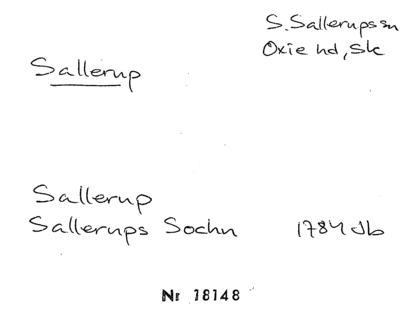 S. Sallerups sn
Oxie hd, Sk
Sallerup
Sallerup
Sallerups Sochn 1784 Jb
Nr 18148